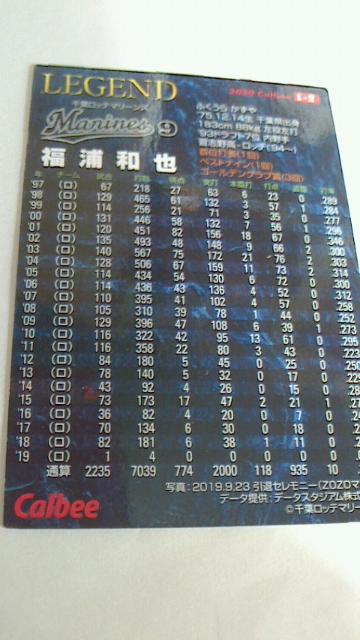 LEGEND
2020 Calbee L-2
千葉ロッテマリーンズ
Marines 9
福浦和也
ふくうら かずや
'75.12.14生 千葉県出身
183cm 88kg 左投左打
'93ドラフト7位 内野手
習志野高-ロッテ('94~)
首位打者(1回)
ベストナイン(1回)
ゴールデングラブ賞(3回)
年 チーム 試合 打数 得点 安打 本塁打 打点 盗塁 打率
'97 (ロ) 67 218 27 63 6 23 0 .289
'98 (ロ) 129 465 61 132 3 57 1 .284
'99 (ロ) 114 256 21 71 3 35 1 .277
'00 (ロ) 131 446 58 132 7 56 1 .296
'01 (ロ) 120 451 82 156 18 67 0 .346
'02 (ロ) 135 493 48 148 9 66 2 .300
'03 (ロ) 140 567 75 172 21 76 2 .303
'04 (ロ) 128 506 67 159 11 73 2 .314
'05 (ロ) 114 434 54 130 6 72 0 .300
'06 (ロ) 114 436 43 136 4 52 0 .312
'07 (ロ) 110 395 41 102 4 57 0 .258
'08 (ロ) 105 310 39 78 1 44 0 .252
'09 (ロ) 129 396 47 108 6 39 1 .273
'10 (ロ) 116 322 42 95 13 61 0 .295
'11 (ロ) 116 358 22 80 3 43 0 .223
'12 (ロ) 84 180 5 45 0 25 0
'13 (ロ) 78 140 5 32 0 17 0
'14 (ロ) 43 92 4 26 0 15 0
'15 (ロ) 73 173 17 47 2 21 1
'16 (ロ) 36 82 4 20 0 7 0
'17 (ロ) 70 134 6 30 0 18 0
'18 (ロ) 82 181 6 38 1 11 0
'19 (ロ) 1 4 0 0 0 0 0
通算 2235 7039 774 2000 118 935 10
Calbee
写真:2019.9.23 引退セレモニー(ZOZOマ
データ提供:データスタジアム株式
©千葉ロッテマリー